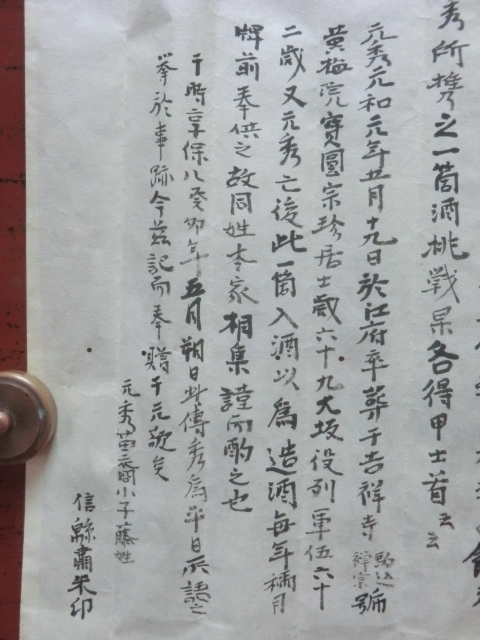 秀所携之一箇酒桃戰杲各得甲士首云云
元秀元和元年五月十九日於江府卒葬于吉祥寺 駒込 禅宗 號
黄梅院寶圓宗珍居士歳六十九大坂役列軍伍六十
二歳又元秀亡後此一箇入酒以為造酒毎年兩月
牌前奉供之故同姓本家相集謹而酌之也
于時享保八癸卯年五月朔日此傳秀為平日所語之
挙於事跡今茲記而奉贈于元敬矣
元秀苗裔小子藤姓
信